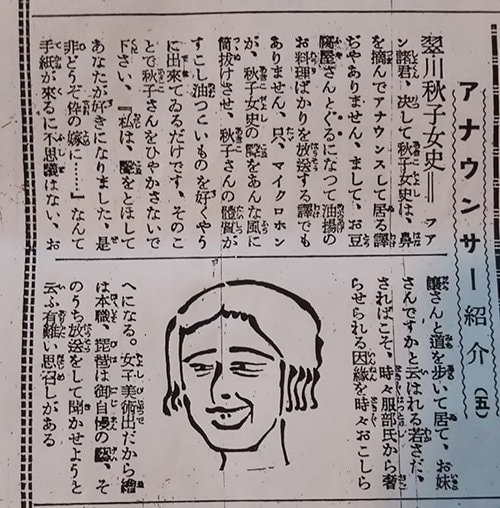 アナウンサー紹介（五）
翠川秋子女史＝＝ファ
ン諸君、決して秋子女史は、鼻
を摘んでアナウンスして居る譯
ぢやありません、まして、お豆
腐屋さんとぐるになつて油揚の
お料理ばかりを放送する譯でも
ありません、只、マイクロホン
が、秋子女史の聲をあんな風に
筒拔けさせ、秋子さんの體質が
すこし油つこいものを好くやう
に出來てゐるだけです、そのこ
とで秋子さんをひやかさないで
下さい、『私は、聲をとほして
あなたが好きになりました、是
非どうぞ忰の嫁に……』なんて
手紙が來るに不思議はない、お
孃さんと道を歩いて居て、お妹
さんですかと云はれる若さだ、
さればこそ、時々服部氏から奢
らせられる因緣を時々おこしら
へになる。女子美術出だから繪
は本職、琵琶は御自慢の藝、そ
のうち放送をして聞かせようと
云ふ有難い思召しがある